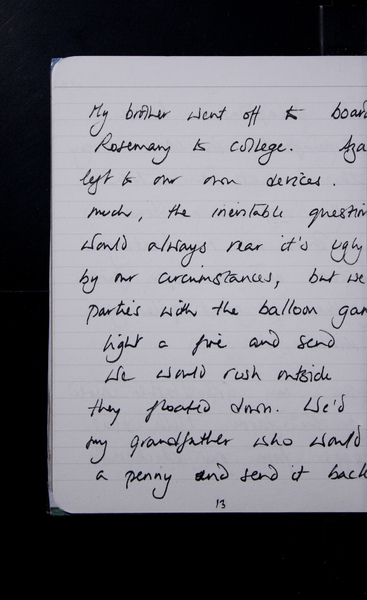 My brother went off to board
Rosemary to college. Aga
left to our own devices.
much, the inevitable question
would always rear it's ugly
by our circumstances, but we
parties with the balloon gam
light a fire and send
We would rush outside
they floated down. We'd
my grandfather who would
a penny and send it back
13